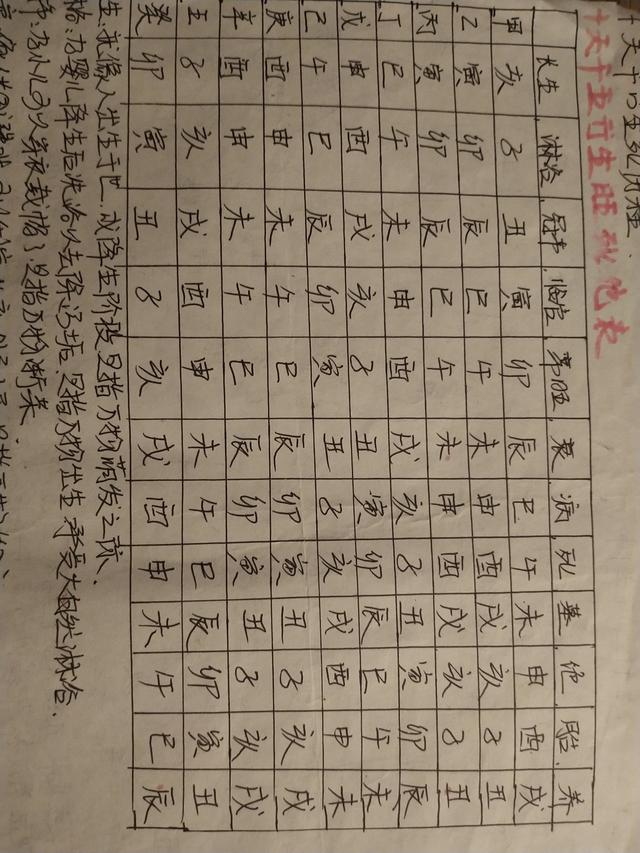 十天干的生死历程.
十天干五行生旺死绝表
长生 沐浴 冠带 临官 帝旺 衰 病 死 墓 绝 胎 养
甲 亥 子 丑 寅 卯 辰 巳 午 未 申 酉 戌
乙 寅 卯 辰 巳 午 未 申 酉 戌 亥 子 丑
丙 寅 卯 辰 巳 午 未 申 酉 戌 亥 子 丑
丁 巳 午 未 申 酉 戌 亥 子 丑 寅 卯 辰
戊 申 酉 戌 亥 子 丑 寅 卯 辰 巳 午 未
己 午 巳 辰 卯 寅 丑 子 亥 戌 酉 申 未
庚 酉 申 未 午 巳 辰 卯 寅 丑 子 亥 戌
辛 酉 申 未 午 巳 辰 卯 寅 丑 子 亥 戌
壬 子 亥 戌 酉 申 未 午 巳 辰 卯 寅 丑
癸 卯 寅 丑 子 亥 戌 酉 申 未 午 巳 辰
生,就像人出生于世,或降生阶段是指万物萌发之际.
浴:为婴儿降生后洗浴以去除污垢.是指万物出生,承受大自然沐浴.
带:为小儿可以穿衣戴帽了.是指万物渐荣